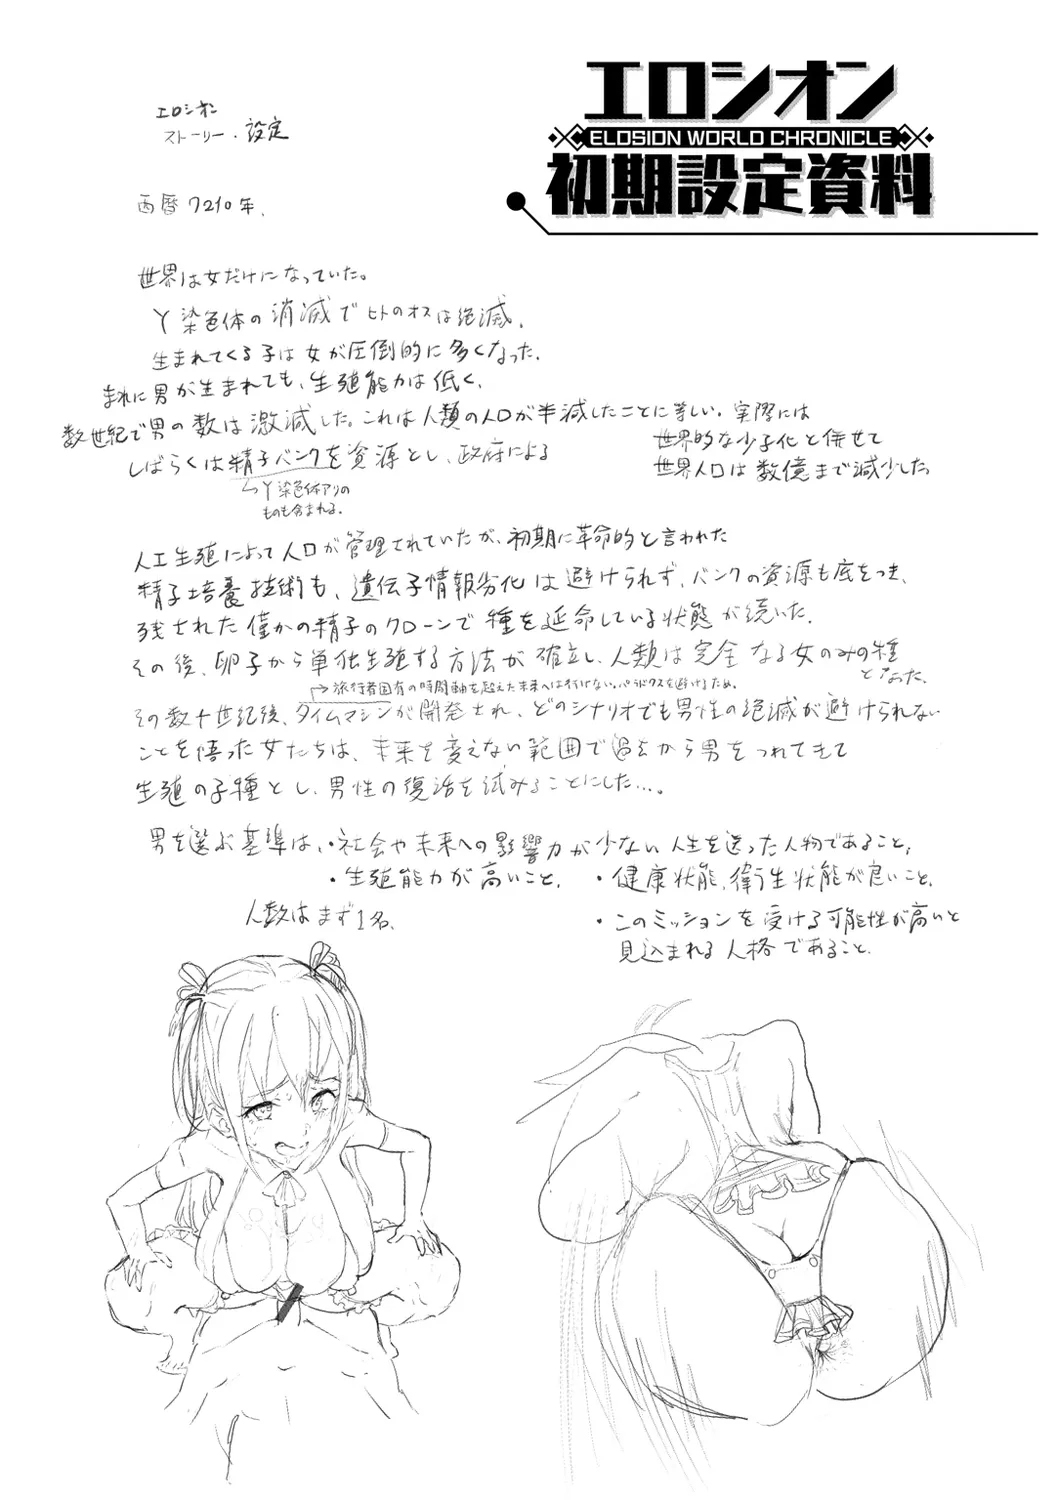 エロシオン
ELOSION WORLD CHRONICLE
初期設定資料
エロシオン
ストーリー・設定
西暦7210年、
世界は女だけになっていた。
Y染色体の消滅でヒトのオスは絶滅。
生まれてくる子は女が圧倒的に多くなった。
まれに男が生まれても、生殖能力は低く、
数世紀で男の数は激減した。これは人類の人口が半減したことに等しい。実際には
世界的な少子化と併せて
世界人口は数億まで減少した。
しばらくは精子バンクを資源とし、政府による
↳Y染色体アリの
ものも含まれる。
人工生殖によって人口が管理されていたが、初期に革命的と言われた
精子培養技術も、遺伝子情報劣化は避けられず、バンクの資源も底をつき、
残された僅かの精子のクローンで種を延命している状態が続いた。
その後、卵子から単独生殖する方法が確立し、人類は完全なる女のみの種
となった。
→旅行者固有の時間軸を超えた未来へは行けない。パラドクスを避けるため。
その数十世紀後、タイムマシンが開発され、どのシナリオでも男性の絶滅が避けられない
ことを悟った女たちは、未来を変えない範囲で過去から男をつれてきて
生殖の子種とし、男性の復活を試みることにした…。
男を選ぶ基準は、・社会や未来への影響力が少ない人生を送った人物であること、
・生殖能力が高いこと、 ・健康状態、衛生状態が良いこと、
人数はまず1名、
・このミッションを受ける可能性が高いと
見込まれる人格であること、